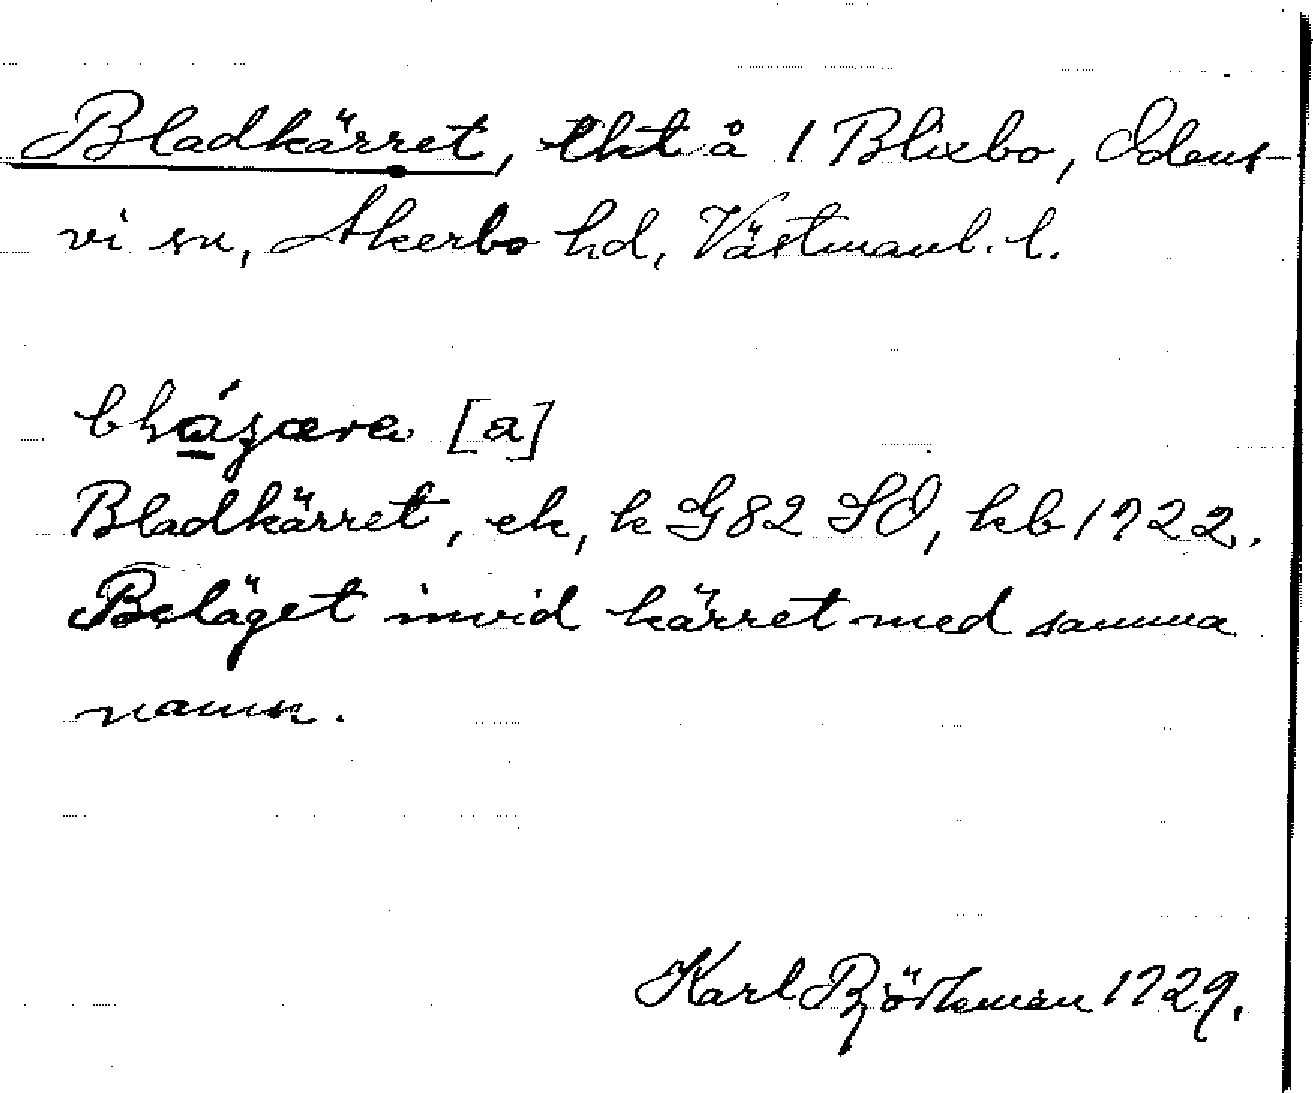 Bladkärret, lht å 1 Blixbo, Odens-
vi sn, Åkerbo hd, Västmanl. l.
[a]
Bladkärret, ek, k G82 SO, kb 1922.
Beläget invid kärret med samma
namn.
Karl Björkman 1929.